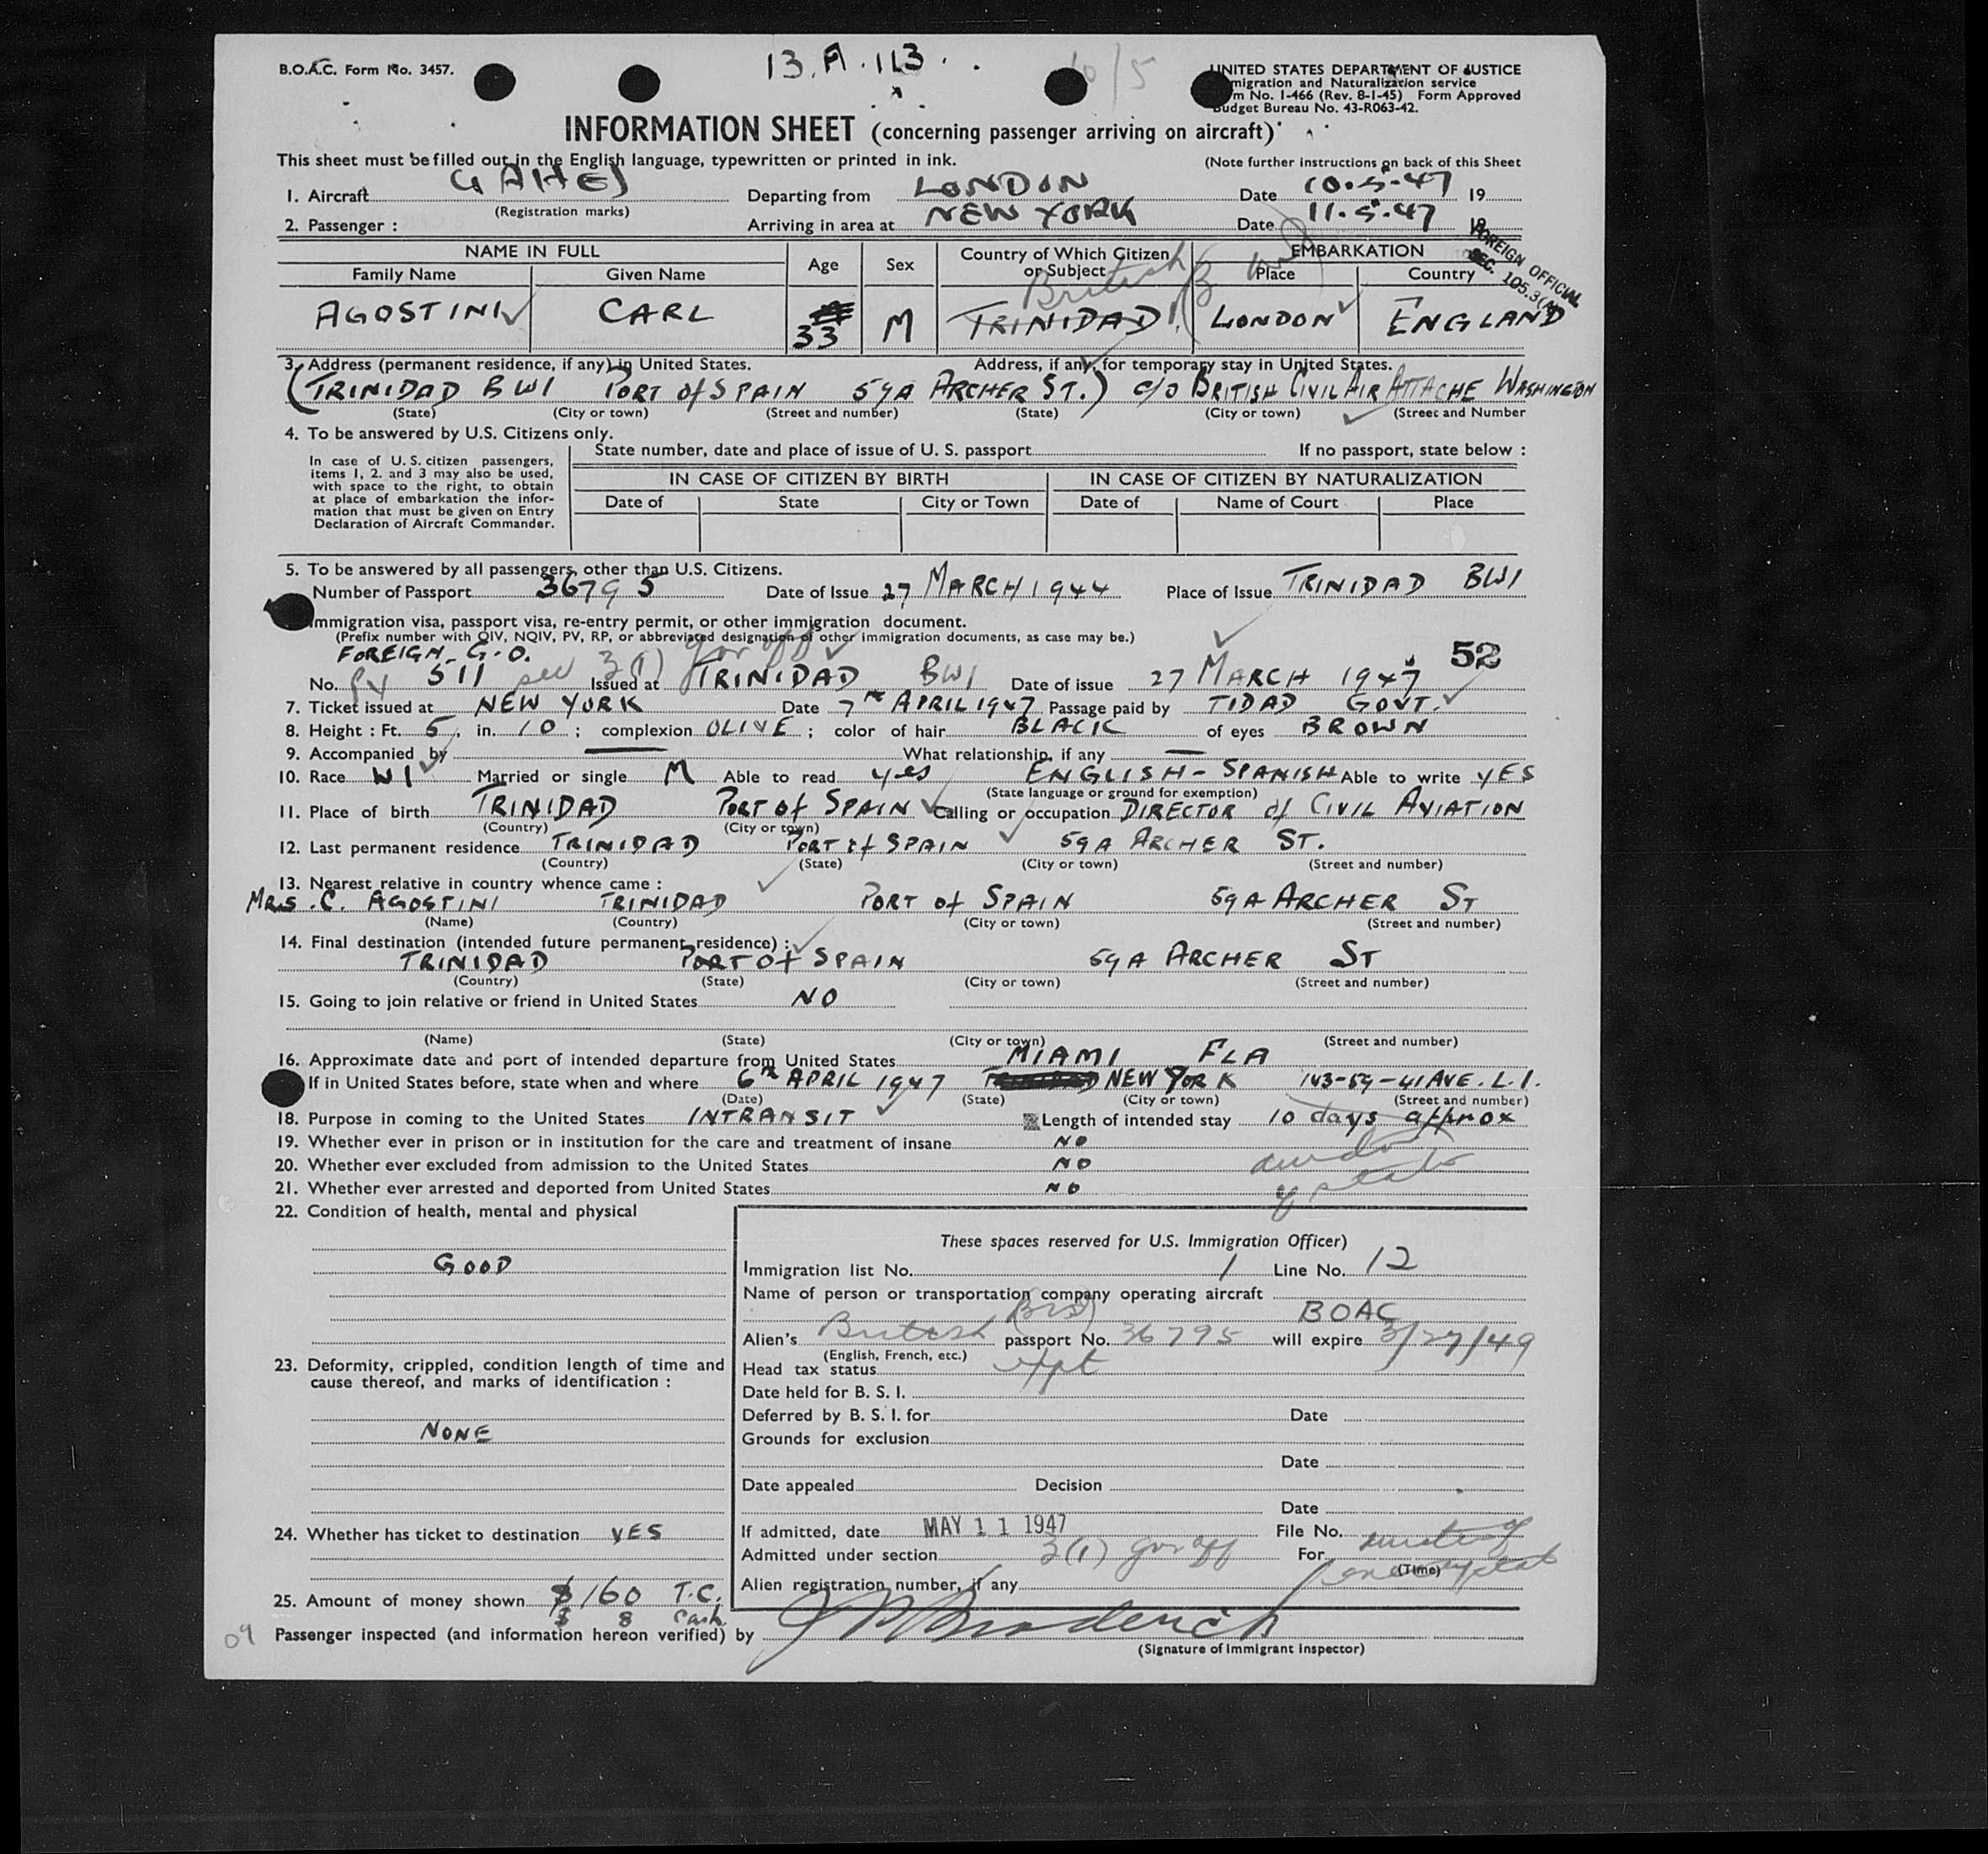 B.O.A.C. Form No. 3457.
13.A.113.
10/5
UNITED STATES DEPARTMENT OF JUSTICE
migration and Naturalization service
m No. I-466 (Rev. 8-1-45) Form Approved
Budget Bureau No. 43-R063-42.
INFORMATION SHEET (concerning passenger arriving on aircraft)
This sheet must be filled out in the English language, typewritten or printed in ink. (Note further instructions on back of this Sheet
1. Aircraft GAHEJ Departing from LONDON Date 10.5.47 19
(Registration marks)
2. Passenger : Arriving in area at NEW YORK Date 11.5.47 19
FOREIGN OFFICIAL
SEC. 105.3(A)
NAME IN FULL Age Sex Country of Which Citizen or Subject EMBARKATION
Family Name Given Name Place Country
British
AGOSTINI CARL 33 M TRINIDAD LONDON ENGLAND
3. Address (permanent residence, if any) in United States. Address, if any, for temporary stay in United States.
(TRINIDAD BWI PORT of SPAIN 59A ARCHER ST.) c/o BRITISH CIVIL AIR ATTACHE WASHINGTON
(State) (City or town) (Street and number) (State) (City or town) (Street and Number
4. To be answered by U.S. Citizens only.
State number, date and place of issue of U. S. passport If no passport, state below :
In case of U. S. citizen passengers, items 1, 2. and 3 may also be used, with space to the right, to obtain at place of embarkation the infor-mation that must be given on Entry Declaration of Aircraft Commander.
IN CASE OF CITIZEN BY BIRTH IN CASE OF CITIZEN BY NATURALIZATION
Date of State City or Town Date of Name of Court Place
5. To be answered by all passengers, other than U.S. Citizens.
Number of Passport 36795 Date of Issue 27 MARCH 1944 Place of Issue TRINIDAD BWI
mmigration visa, passport visa, re-entry permit, or other immigration document.
(Prefix number with QIV, NQIV, PV, RP, or abbreviated designation of other immigration documents, as case may be.)
FOREIGN G.O. 3(1) gov off 52
No. PV 511 Issued at TRINIDAD BWI Date of issue 27 MARCH 1947
7. Ticket issued at NEW YORK Date 7th APRIL 1947 Passage paid by TIDAD GOVT.
8. Height : Ft. 5, in. 10 ; complexion OLIVE ; color of hair BLACK of eyes BROWN
9. Accompanied by — What relationship, if any —
10. Race WI Married or single M Able to read yes ENGLISH - SPANISH Able to write YES
(State language or ground for exemption)
11. Place of birth TRINIDAD PORT of SPAIN Calling or occupation DIRECTOR of CIVIL AVIATION
(Country) (City or town)
12. Last permanent residence TRINIDAD PORT of SPAIN 59A ARCHER ST.
(Country) (State) (City or town) (Street and number)
13. Nearest relative in country whence came :
MRS. C. AGOSTINI TRINIDAD PORT of SPAIN 59A ARCHER ST
(Name) (Country) (City or town) (Street and number)
14. Final destination (intended future permanent residence) :
TRINIDAD PORT of SPAIN 59A ARCHER ST
(Country) (State) (City or town) (Street and number)
15. Going to join relative or friend in United States NO
(Name) (State) (City or town) (Street and number)
16. Approximate date and port of intended departure from United States MIAMI FLA
If in United States before, state when and where 6th APRIL 1947 NEW YORK 143-59-41 AVE. L.I.
(Date) (State) (City or town) (Street and number)
18. Purpose in coming to the United States INTRANSIT Length of intended stay 10 days approx
19. Whether ever in prison or in institution for the care and treatment of insane NO
20. Whether ever excluded from admission to the United States NO
21. Whether ever arrested and deported from United States NO
22. Condition of health, mental and physical
GOOD
These spaces reserved for U.S. Immigration Officer)
Immigration list No. 1 Line No. 12
Name of person or transportation company operating aircraft
BOAC
Alien's British passport No. 36795 will expire 3/27/49
(English, French, etc.)
Head tax status expt
Date held for B. S. I.
Deferred by B. S. I. for Date
Grounds for exclusion
Date
Date appealed Decision
Date
If admitted, date MAY 11 1947 File No.
Admitted under section 3(1) gov off For
(Time)
Alien registration number, if any
23. Deformity, crippled, condition length of time and cause thereof, and marks of identification :
NONE
24. Whether has ticket to destination YES
25. Amount of money shown $160 T.C.
$ 8 Cash
09
Passenger inspected (and information hereon verified) by
(Signature of Immigrant Inspector)